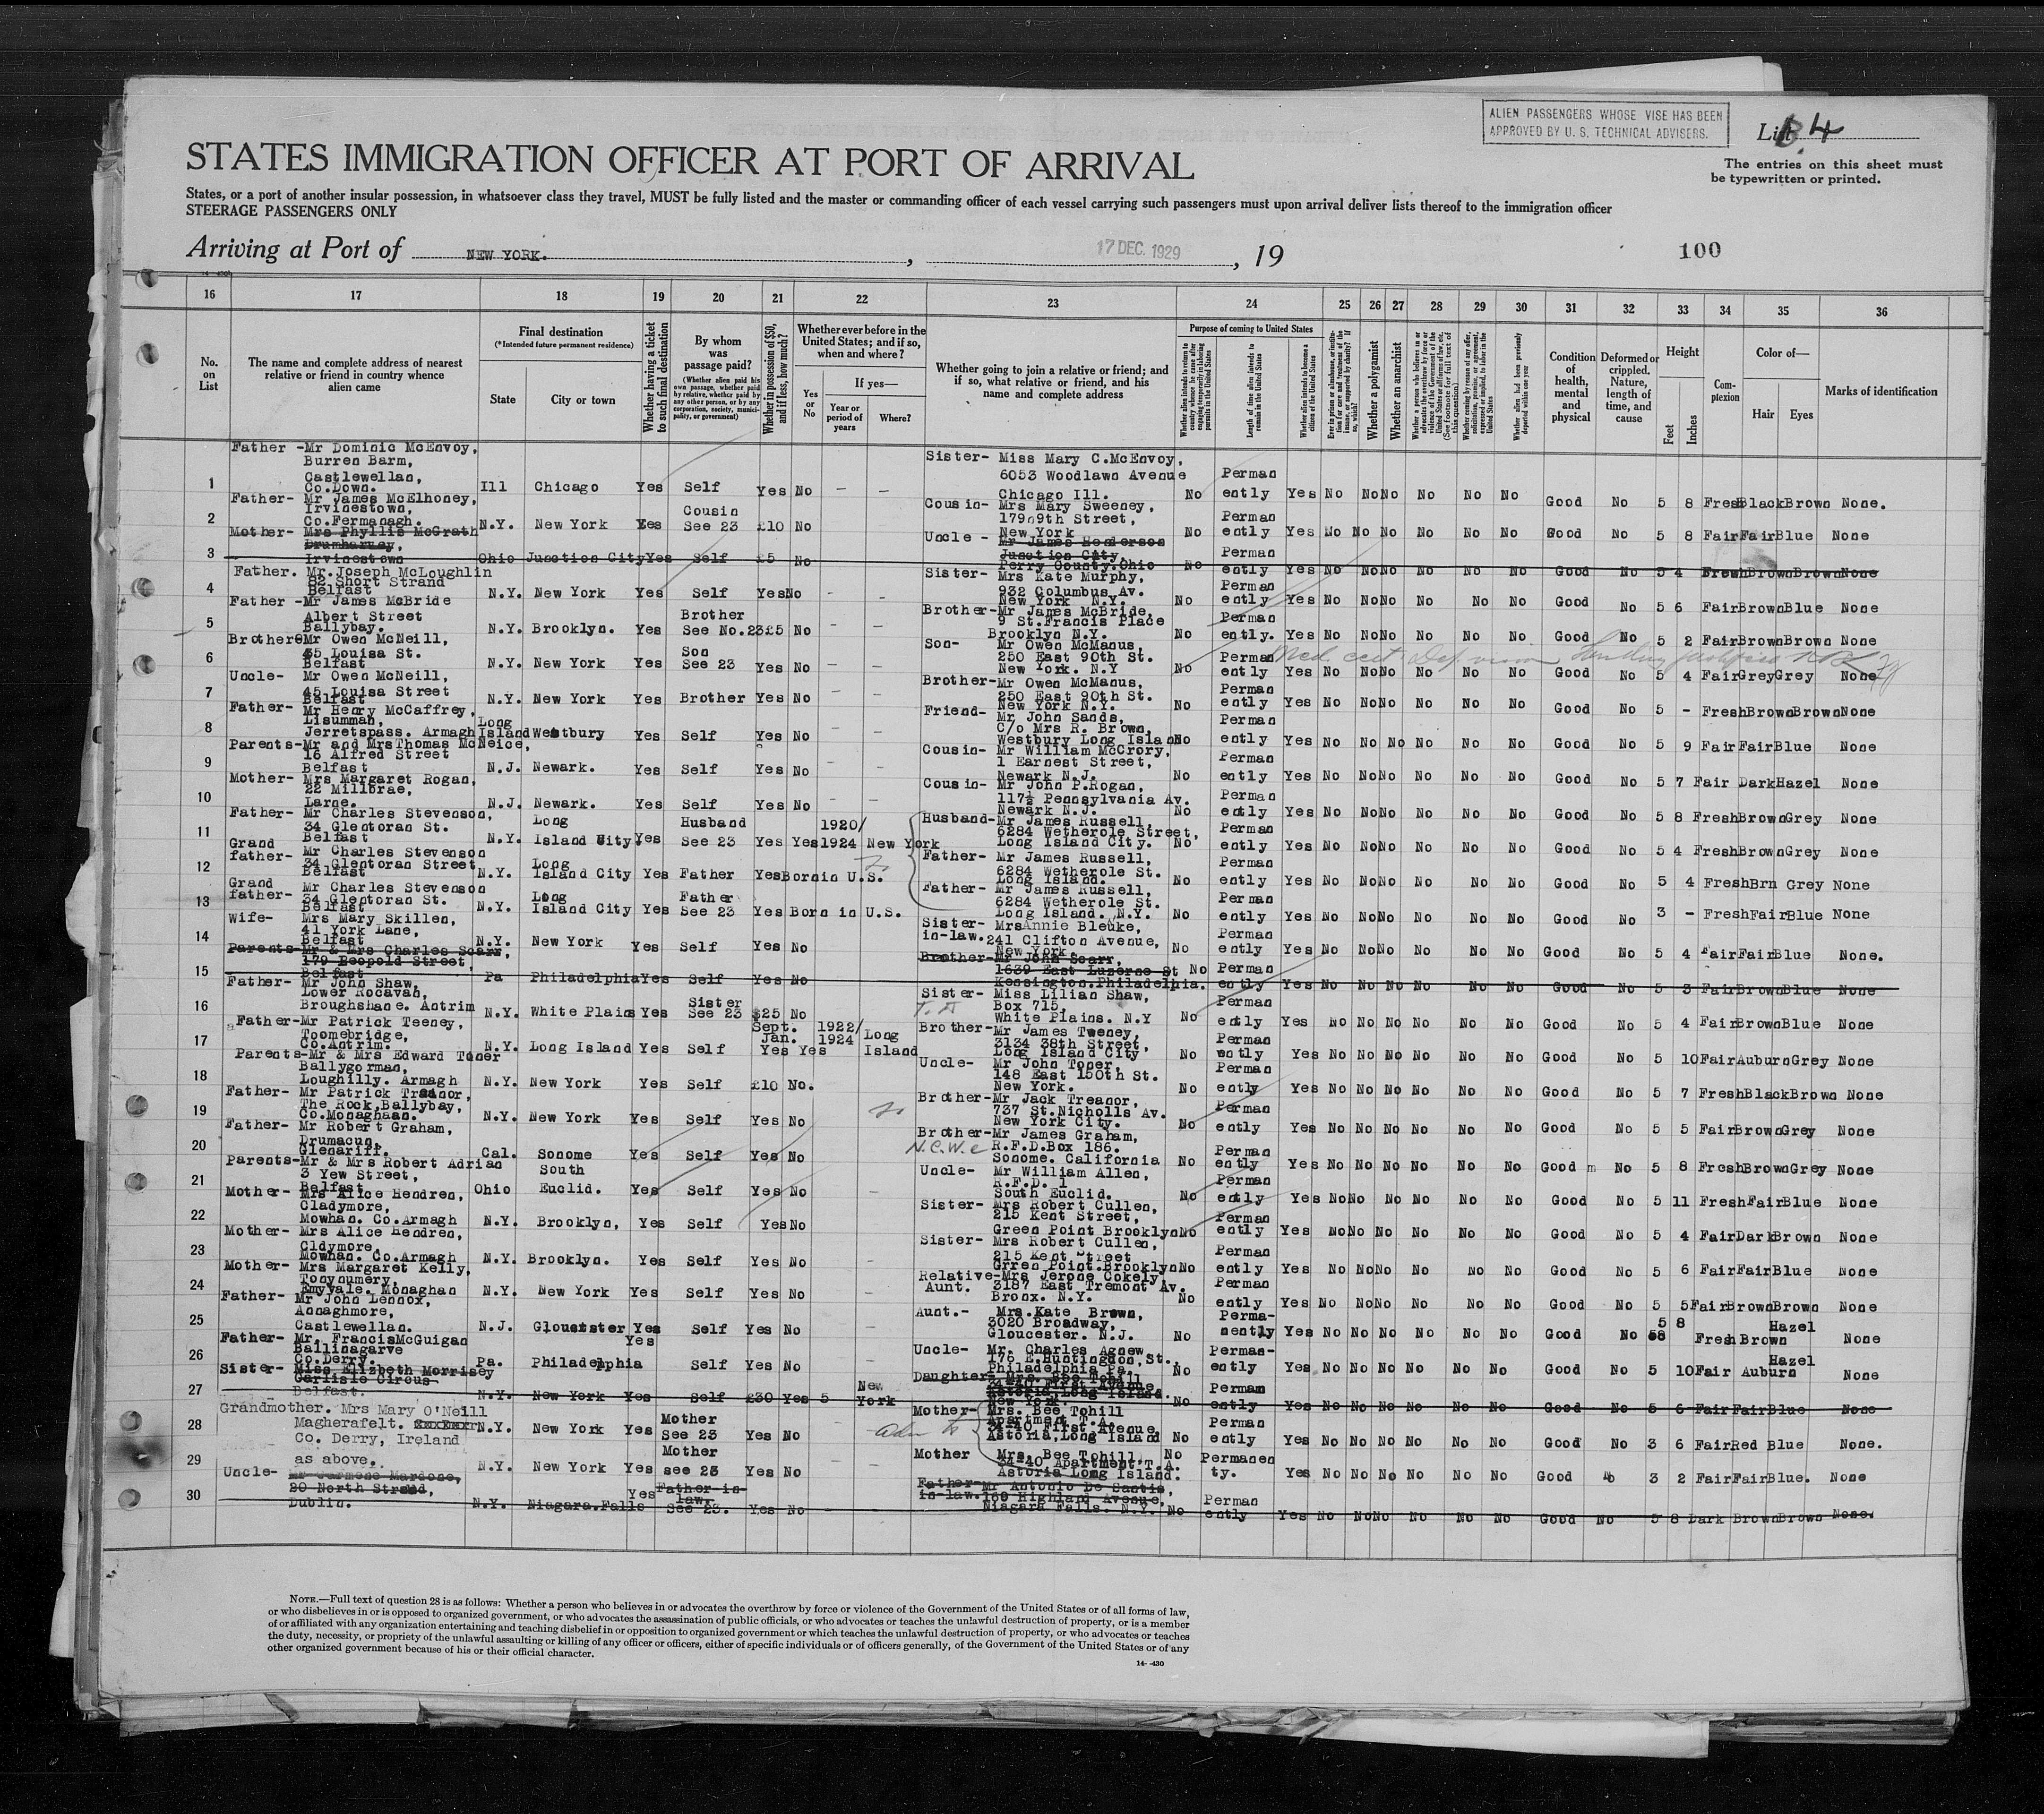 ALIEN PASSENGERS WHOSE VISE HAS BEEN
APPROVED BY U. S. TECHNICAL ADVISERS.
List 4
STATES IMMIGRATION OFFICER AT PORT OF ARRIVAL
The entries on this sheet must
be typewritten or printed.
States, or a port of another insular possession, in whatsoever class they travel, MUST be fully listed and the master or commanding officer of each vessel carrying such passengers must upon arrival deliver lists thereof to the immigration officer
STEERAGE PASSENGERS ONLY
Arriving at Port of NEW YORK. , 17 DEC. 1929 , 19
100
16 17 18 19 20 21 22 23 24 25 26 27 28 29 30 31 32 33 34 35 36
No. on List
The name and complete address of nearest relative or friend in country whence alien came
Final destination
(*Intended future permanent residence)
State
City or town
Whether having a ticket to such final destination
By whom was passage paid?
(Whether alien paid his own passage, whether paid by relative, whether paid by any other person, or by any corporation, society, municipality, or government)
Whether in possession of $50, and if less, how much?
Whether ever before in the United States; and if so, when and where?
Yes or No
If yes—
Year or period of years
Where?
Whether going to join a relative or friend; and if so, what relative or friend, and his name and complete address
Purpose of coming to United States
Length of time alien intends to remain in the United States
Whether alien intends to become a citizen of the United States
Whether a polygamist
Whether an anarchist
Condition of health, mental and physical
Deformed or crippled. Nature, length of time, and cause
Height
Feet
Inches
Complexion
Color of—
Hair
Eyes
Marks of identification
1 Father -Mr Dominic McEnvoy, Burren Barm, Castlewellan, Co.Down. Ill Chicago Yes Self Yes No — — Sister- Miss Mary C.McEnvoy, 6053 Woodlawn Avenue Chicago Ill. No Perman ently Yes No No No No No No Good No 5 8 Fresh Black Brown None.
2 Father- Mr James McElhoney, Irvinestown, Co.Fermanagh. N.Y. New York Yes Cousin See 23 £10 No Cousin- Mrs Mary Sweeney, 179 9th Street, New York No Perman ently Yes No No No No No No Good No 5 8 Fair Fair Blue None
3 Mother- Mrs Phyllis McGrath Drumharvey, Irvinestown Ohio Junction City Yes Self £5 No Uncle - Mr James Henderson Junction City, Perry County.Ohio No Perman ently Yes No No No No No No Good No 5 4 Fresh Brown Brown None
4 Father. Mr.Joseph McLoughlin 82 Short Strand Belfast N.Y. New York Yes Self Yes No - - Sister- Mrs Kate Murphy, 932 Columbus Av. New York N.Y. No Perman ently Yes No No No No No No Good No 5 6 Fair Brown Blue None
5 Father -Mr James McBride Albert Street Ballybay. N.Y. Brooklyn. Yes Brother See No.23 £5 No — — Brother-Mr James McBride, 9 St.Francis Place Brooklyn N.Y. No Perman ently. Yes No No No No No No Good No 5 2 Fair Brown Brown None
6 Brother Mr Owen McNeill, 45 Louisa St. Belfast N.Y. New York Yes Son See 23 Yes No — — Son- Mr Owen McManus, 250 East 90th St. New York. N.Y No Perman ently Yes No No No No No No Good No 5 4 Fair Grey Grey None
7 Uncle- Mr Owen McNeill, 45 Louisa Street Belfast N.Y. New York Yes Brother Yes No — — Brother-Mr Owen McManus, 250 East 90th St. New York N.Y. No Perman ently Yes No No No No No No Good No 5 - Fresh Brown Brown None
8 Father- Mr Henry McCaffrey, Lisumman, Jerretspass. Armagh Long Island Westbury Yes Self Yes No — — Friend- Mr John Sands, C/o Mrs R. Brown, Westbury Long Island No Perman ently Yes No No No No No No Good No 5 9 Fair Fair Blue None
9 Parents-Mr and Mrs Thomas McNeice, 16 Alfred Street Belfast N.J. Newark. Yes Self Yes No — — Cousin- Mr William McCrory, 1 Earnest Street, Newark N.J. No Perman ently Yes No No No No No No Good No 5 7 Fair Dark Hazel None
10 Mother- Mrs Margaret Rogan, 22 Millbrae, Larne. N.J. Newark. Yes Self Yes No — — Cousin- Mr John P.Rogan, 117½ Pennsylvania Av. Newark N.J. No Perman ently Yes No No No No No No Good No 5 8 Fresh Brown Grey None
11 Father- Mr Charles Stevenson, 34 Glentoran St. Belfast N.Y. Long Island City. Yes Husband See 23 Yes Yes 1920/1924 New York Husband-Mr James Russell, 6284 Wetherole Street, Long Island City. No Perman ently Yes No No No No No No Good No 5 4 Fresh Brown Grey None
12 Grand father- Mr Charles Stevenson 34 Glentoran Street Belfast N.Y. Long Island City Yes Father Yes Born in U.S. Father- Mr James Russell, 6284 Wetherole St. Long Island. No Perman ently Yes No No No No No No Good No 5 4 Fresh Brn Grey None
13 Grand father- Mr Charles Stevenson 34 Glentoran St. Belfast N.Y. Long Island City Yes Father See 23 Yes Born in U.S. Father- Mr James Russell, 6284 Wetherole St. Long Island. N.Y. No Perman ently Yes No No No No No No Good No 3 - Fresh Fair Blue None
14 Wife- Mrs Mary Skillen, 41 York Lane, Belfast N.Y. New York Yes Self Yes No Sister-in-law. Mrs Annie Bleuke, 241 Clifton Avenue, New York No Perman ently Yes No No No No No No Good No 5 4 Fair Fair Blue None.
15 Parents-Mr & Mrs Charles Scarr, 179 Leopold Street, Belfast Pa Philadelphia Yes Self Yes No Brother-Mr John Scarr, 1639 East Luzerne St Kensington.Philadelphia. No Perman ently Yes No No No No No No Good No 5 3 Fair Brown Blue None
16 Father- Mr John Shaw, Lower Rocavan, Broughshane. Antrim N.Y. White Plains Yes Sister See 23 $25 No Sister- Miss Lilian Shaw, Box 715, White Plains. N.Y No Perman ently Yes No No No No No No Good No 5 4 Fair Brown Blue None
17 Father-Mr Patrick Teeney, Toomebridge, Co.Antrim. N.Y. Long Island Yes Self Yes Yes Sept. 1922/ Jan. 1924 Long Island Brother-Mr James Tweney, 3134 38th Street, Long Island City No Perman ently Yes No No No No No No Good No 5 10 Fair Auburn Grey None
18 Parents-Mr & Mrs Edward Toner Ballygorman, Loughilly. Armagh N.Y. New York Yes Self £10 No. Uncle- Mr John Toner, 148 East 150th St. New York. No Perman ently Yes No No No No No No Good No 5 7 Fresh Black Brown None
19 Father- Mr Patrick Treanor, The Rock,Ballybay, Co.Monaghaan. N.Y. New York Yes Self Yes No Brother-Mr Jack Treanor, 737 St.Nicholls Av. New York City. No Perman ently Yes No No No No No No Good No 5 5 Fair Brown Grey None
20 Father- Mr Robert Graham, Drumacun, Glenariff. Cal. Sonome Yes Self Yes No Brother-Mr James Graham, R.F.D.Box 186. Sonome. California No Perman ently Yes No No No No No No Good No 5 8 Fresh Brown Grey None
21 Parents-Mr & Mrs Robert Adrian 3 Yew Street, Belfast Ohio South Euclid. Yes Self Yes No — Uncle- Mr William Allen, R.F.D. 1 South Euclid. No Perman ently Yes No No No No No No Good No 5 11 Fresh Fair Blue None
22 Mother- Mrs Alice Hendren, Cladymore, Mowhan. Co.Armagh N.Y. Brooklyn, Yes Self Yes No — Sister- Mrs Robert Cullen, 215 Kent Street, Green Point Brooklyn No Perman ently Yes No No No No No No Good No 5 4 Fair Dark Brown None
23 Mother- Mrs Alice Hendren, Cldymore, Mowhan. Co.Armagh N.Y. Brooklyn. Yes Self Yes No — Sister- Mrs Robert Cullen, 215 Kent Street Grren Point.Brooklyn No Perman ently Yes No No No No No No Good No 5 6 Fair Fair Blue None
24 Mother- Mrs Margaret Kelly, Tonynumery, Emyvale. Monaghan N.Y. New York Yes Self Yes No — Relative-Aunt. Mrs Jerone Cokely, 3187 East Tremont Av. Bronx. N.Y. No Perman ently Yes No No No No No No Good No 5 5 Fair Brown Brown None
25 Father- Mr John Lennox, Annaghmore, Castlewellan. N.J. Gloucester Yes Self Yes No — Aunt.- Mrs.Kate Brown, 3020 Broadway, Gloucester. N.J. No Perma-nently Yes No No No No No No Good No 5 8 Fresh Brown Hazel None
26 Father- Mr. Francis McGuigan Ballinagarve Co.Derry. Pa. Philadelphia Yes Self Yes No — Uncle- Mr. Charles Agnew 175 E.Huntingdon,St. Philadelphia Pa. No Perman-ently Yes No No No No No No Good No 5 10 Fair Auburn Hazel None
27 Sister- Miss Elizbeth Morrisey Carlisle Circus Belfast. N.Y. New York Yes Self £30 Yes 5 New York Daughter- Mrs. Bee Tohill 34-40 First Avenue Astoria,Long Island. New York. No Perman ently Yes No No No No No No Good No 5 6 Fair Fair Blue None
28 Grandmother. Mrs Mary O'Neill Magherafelt. Co. Derry, Ireland N.Y. New York Yes Mother See 23 Yes No Mother- Mrs. Bee Tohill Apartment T.A. 34-40 First Avenue, Astoria,Long Island No Perman ently Yes No No No No No No Good No 3 6 Fair Red Blue None.
29 as above. N.Y. New York Yes Mother see 23 Yes No — — Mother Mrs. Bee Tohill, 34-40 Apartment T.A. Astoria Long Island. No Permanen ty. Yes No No No No No No Good No 3 2 Fair Fair Blue. None
30 Uncle- Mr Carmene Mardone, 20 North Strand, Dublin. N.Y. Niagara.Falls Yes Father-in-law. See 23. Yes No - — Father-in-law. Mr Antonio De Santis, 150 Highland Avenue, Niagara Falls. N.Y. No Perman ently Yes No No No No No No Good No 5 8 Dark Brown Brown None.
NOTE.—Full text of question 28 is as follows: Whether a person who believes in or advocates the overthrow by force or violence of the Government of the United States or of all forms of law,
or who disbelieves in or is opposed to organized government, or who advocates the assassination of public officials, or who advocates or teaches the unlawful destruction of property, or is a member
of or affiliated with any organization entertaining and teaching disbelief in or opposition to organized government or which teaches the unlawful destruction of property, or who advocates or teaches
the duty, necessity, or propriety of the unlawful assaulting or killing of any officer or officers, either of specific individuals or of officers generally, of the Government of the United States or of any
other organized government because of his or their official character.
14-430